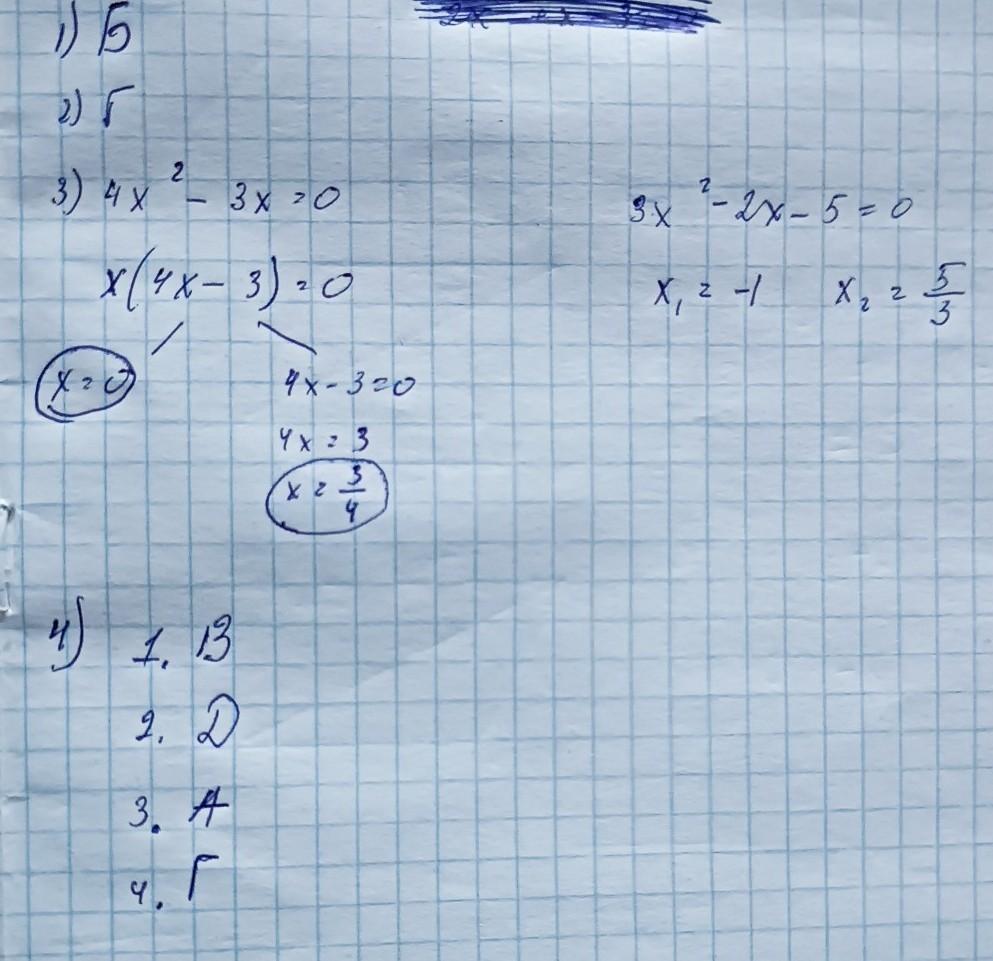 1) Б
2) Г
3) 4x² - 3x = 0
x(4x - 3) = 0
x = 0
4x - 3 = 0
4x = 3
x = 3/4
3x² - 2x - 5 = 0
x₁ = -1 x₂ = 5/3
4) 1. В
2. D
3. А
4. Г